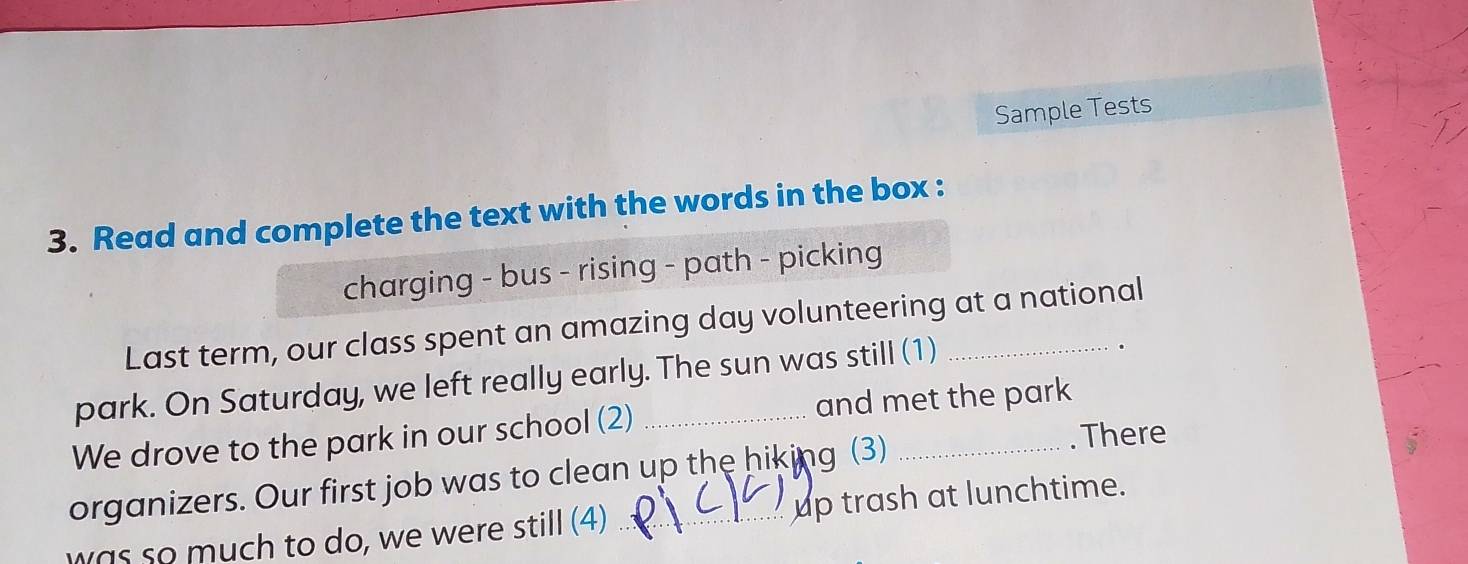 Sample Tests
3. Read and complete the text with the words in the box :
charging - bus - rising - path - picking
Last term, our class spent an amazing day volunteering at a national
park. On Saturday, we left really early. The sun was still (1) .................... .
We drove to the park in our school (2) .................... and met the park
organizers. Our first job was to clean up the hiking (3) .................... . There
was so much to do, we were still (4) .................... up trash at lunchtime.